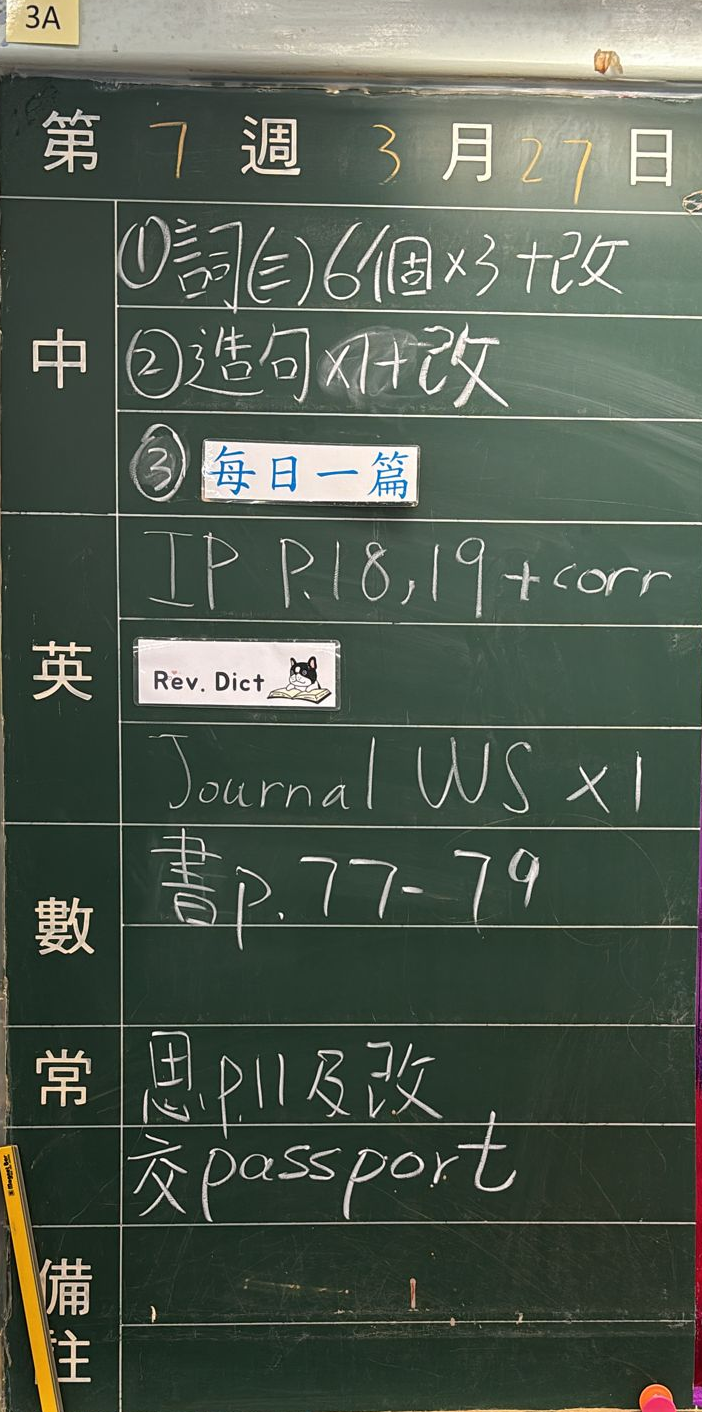 3A
第 7 週 3 月 27 日
中
①詞(三)6個×3+改
②造句×1+改
③每日一篇
英
IP P.18,19+corr
Rev. Dict
Journal WS ×1
數
書p.77-79
常
思p.11及改
交passport
備註